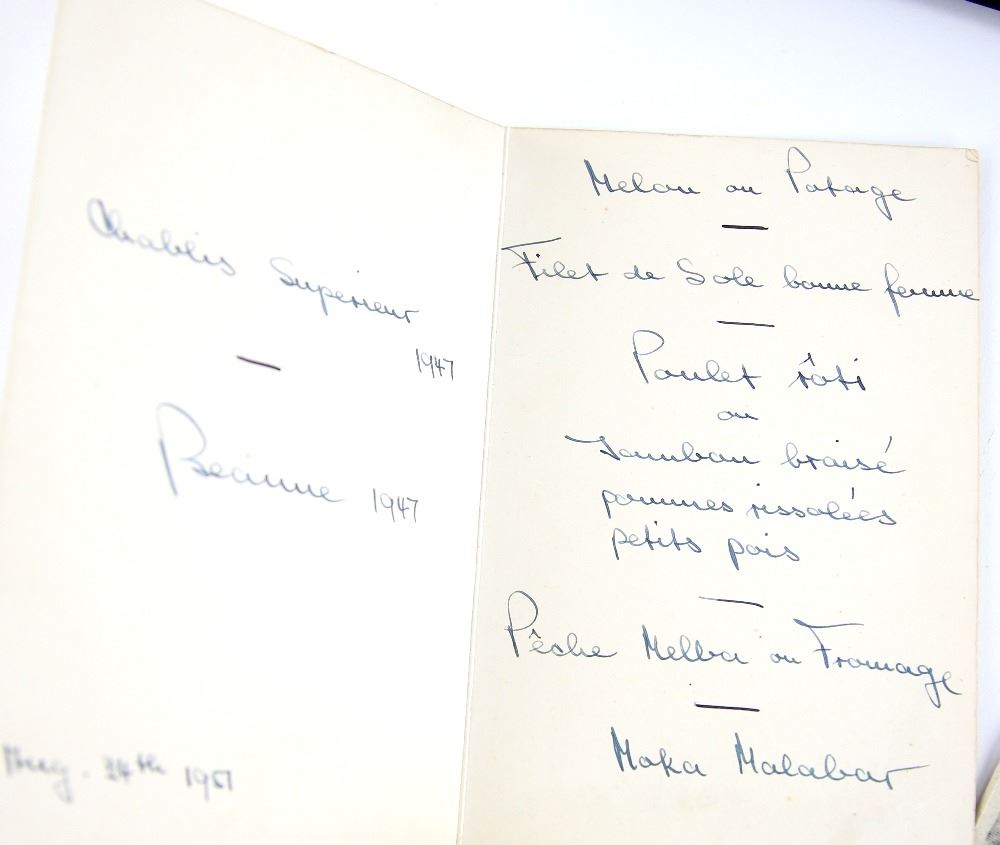 Chablis Superieur
1947
Beaune 1947
Aug. 24th 1951
Melon ou Potage
Filet de Sole bonne femme
Poulet rôti
ou
Jambon braisé
pommes rissolées
petits pois
Pêche Melba ou Fromage
Moka Malabar